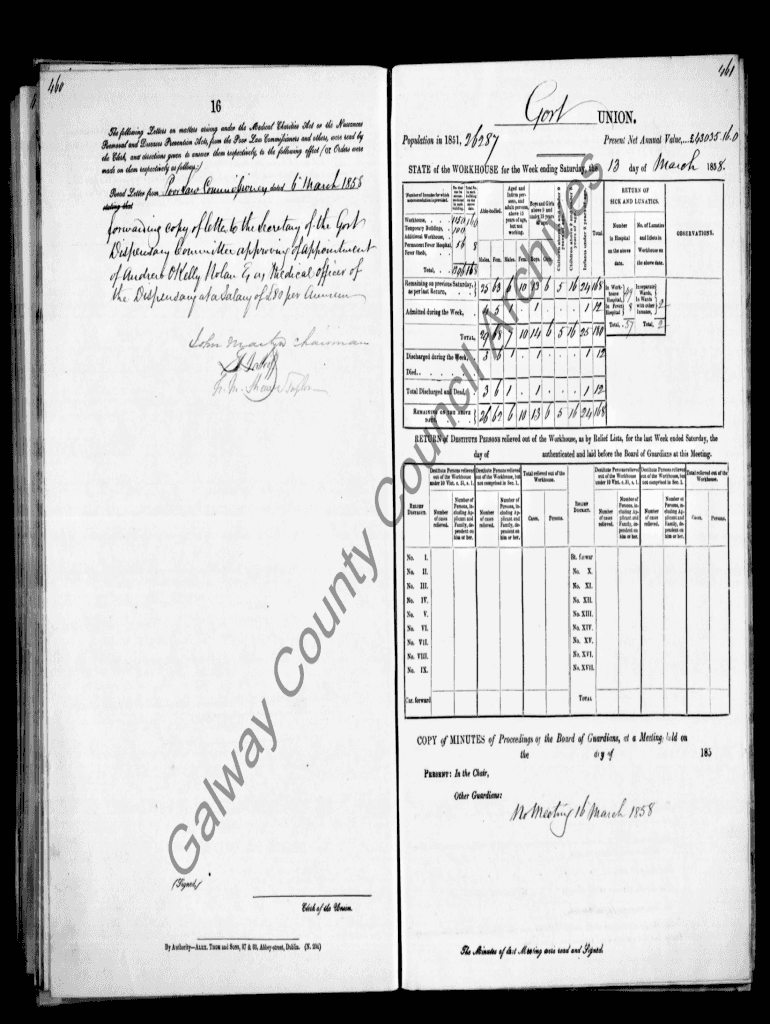 460
16
The following Letters on matters arising under the Medical Charities Act or the Nuisances
Removal and Diseases Prevention Acts, from the Poor Law Commissioners and others, were read by
the Clerk, and directions given to answer them respectively, to the following effect (or Orders were
made on them respectively as follows:)
Read Letter from Poor Law Commissioners dated 6 March 1858
stating that
forwarding copy of letter to the Secretary of the Gort
Dispensary Committee approving of appointment
of Andrew O'Kelly Nolan Esq as Medical officer of
the Dispensary at a Salary of £80 per Annum
John Martyn Chairman
(Signed)
Clerk of the Union.
By Authority—ALEX. THOM and SONS, 87 & 88, Abbey-street, Dublin.
461
Gort UNION.
Population in 1851, 26287 Present Net Annual Value, £43035.16.0
STATE of the WORKHOUSE for the Week ending Saturday, the 13 day of March 1858.
Number of Inmates for which accommodation is provided.
Able-bodied.
Aged and infirm persons, and adult persons, above 15 years of age, but not working.
Boys and Girls above 9 and under 15 years of age.
Infants under 2 years
Total.
RETURN OF SICK AND LUNATICS.
Number in Hospital on the above date.
No. of Lunatics and Idiots in Workhouse on the above date.
OBSERVATIONS.
Workhouse,
Temporary Buildings,
Additional Workhouse,
Permanent Fever Hospital, 56 8
Fever Sheds,
Total,
Males. Fem. Males. Fem. Boys. Girls.
Remaining on previous Saturday, as per last Return, 25 63 6 10 13 6 5 16 24 168
Admitted during the Week, 4 5 1 . 1 . . . 1 12
TOTAL, 29 68 7 10 14 6 5 16 25 180
Discharged during the Week, 3 6 1 . 1 . . . 1 12
Died,
Total Discharged and Dead, 3 6 1 . 1 . . . 1 12
REMAINING ON THE ABOVE DATE, 26 62 6 10 13 6 5 16 24 168
In Workhouse Hospital, 49
In Fever Hospital 8
Total, 57
In separate Wards,
In Wards with other Inmates, 2
Total, 2
RETURN of DESTITUTE PERSONS relieved out of the Workhouse, as by Relief Lists, for the last Week ended Saturday, the
day of authenticated and laid before the Board of Guardians at this Meeting.
RELIEF DISTRICT.
Destitute Persons relieved out of the Workhouse under 10 Vict. c. 31, s. 1.
Destitute Persons relieved out of the Workhouse, but not comprised in Sec. 1.
Total relieved out of the Workhouse.
Number of cases relieved.
Number of Persons, including Applicant and Family, dependent on him or her.
Number of cases relieved.
Number of Persons, including Applicant and Family, dependent on him or her.
Cases. Persons.
RELIEF DISTRICT.
Destitute Persons relieved out of the Workhouse under 10 Vict. c. 31, s. 1.
Destitute Persons relieved out of the Workhouse, but not comprised in Sec. 1.
Total relieved out of the Workhouse.
Number of cases relieved.
Number of Persons, including Applicant and Family, dependent on him or her.
Number of cases relieved.
Number of Persons, including Applicant and Family, dependent on him or her.
Cases. Persons.
No. I. Bt. forwar
No. II. No. X.
No. III. No. XI.
No. IV. No. XII.
No. V. No. XIII.
No. VI. No. XIV.
No. VII. No. XV.
No. VIII. No. XVI.
No. IX. No. XVII.
Car. forward TOTAL
COPY of MINUTES of Proceedings of the Board of Guardians, at a Meeting held on
the day of 185
PRESENT: In the Chair,
Other Guardians:
No Meeting 16 March 1858
The Minutes of last Meeting were read and Signed.
Galway County Council Archives